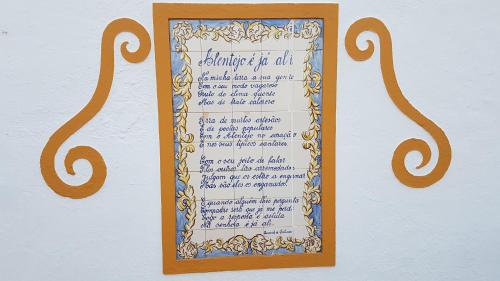 Alentejo é já ali
Na minha terra a sua gente
Com o seu modo vagaroso
Fruto do clima quente
Mas de trato caloroso
Terra de muitos artesãos
E de poetas populares
Com o Alentejo no coração
E nos seus típicos cantares
Com o seu jeito de falar
Pelos outros são arremedados
Julgam que os estão a enganar
Mas são eles os enganados
E quando alguém lhes pergunta
Compadre será que já me perdi
Logo a resposta é astuta
Não senhor é já ali